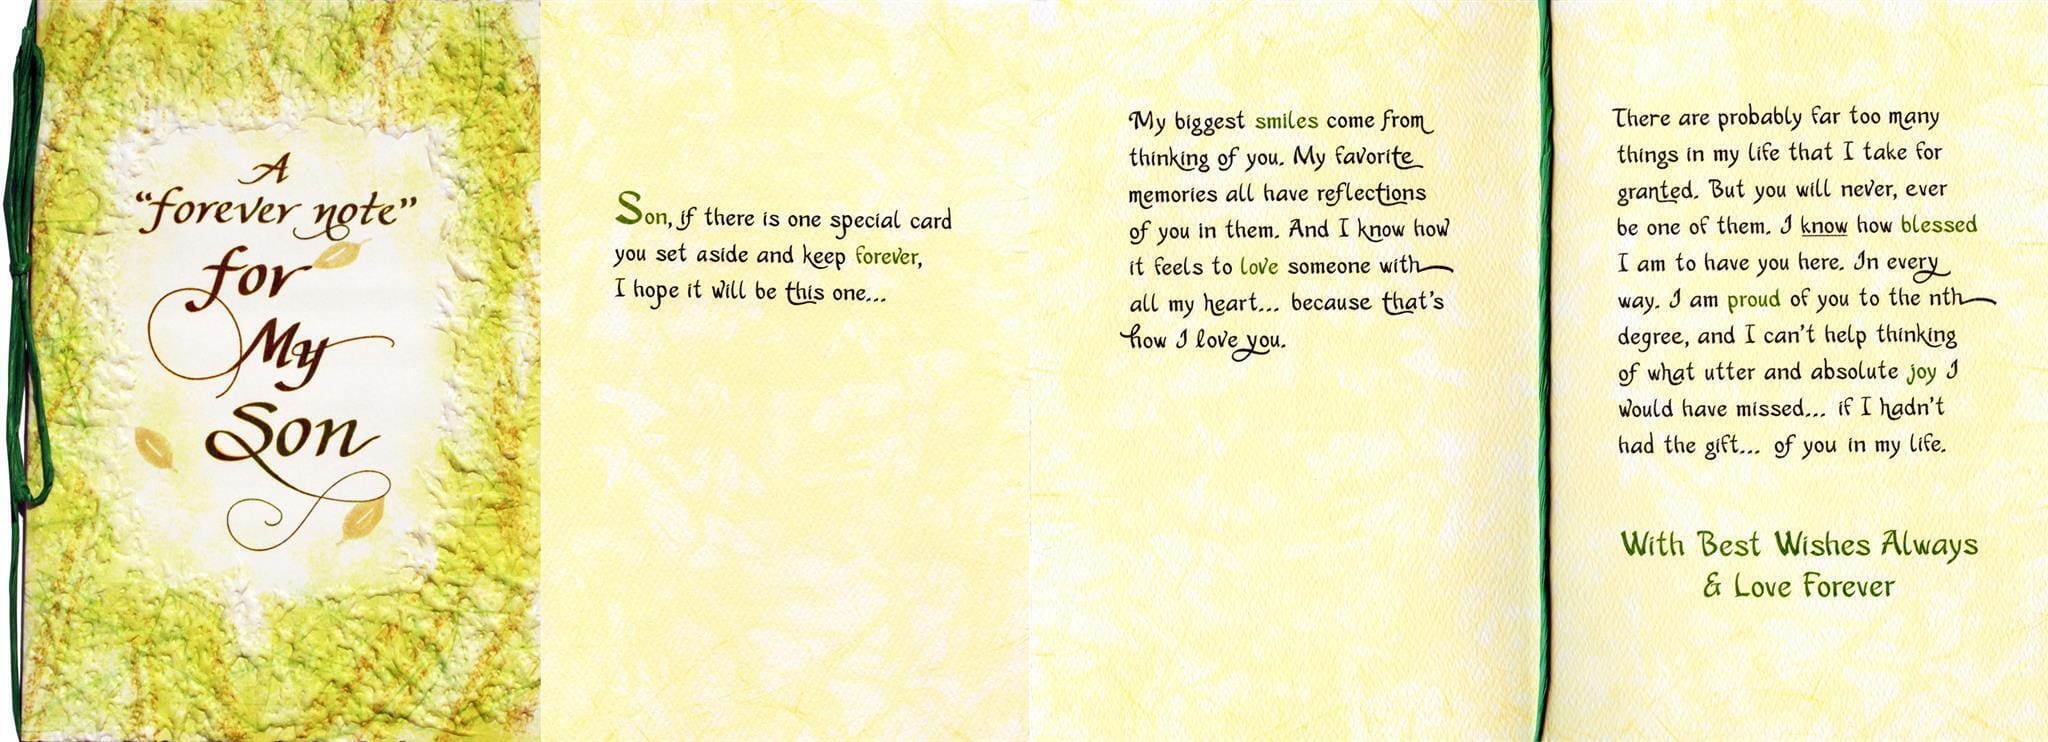 A
“forever note”
for
My
Son
Son, if there is one special card
you set aside and keep forever,
I hope it will be this one...
My biggest smiles come from
thinking of you. My favorite
memories all have reflections
of you in them. And I know how
it feels to love someone with
all my heart... because that's
how I love you.
There are probably far too many
things in my life that I take for
granted. But you will never, ever
be one of them. I know how blessed
I am to have you here. In every
way. I am proud of you to the nth
degree, and I can't help thinking
of what utter and absolute joy I
would have missed... if I hadn't
had the gift... of you in my life.
With Best Wishes Always
& Love Forever